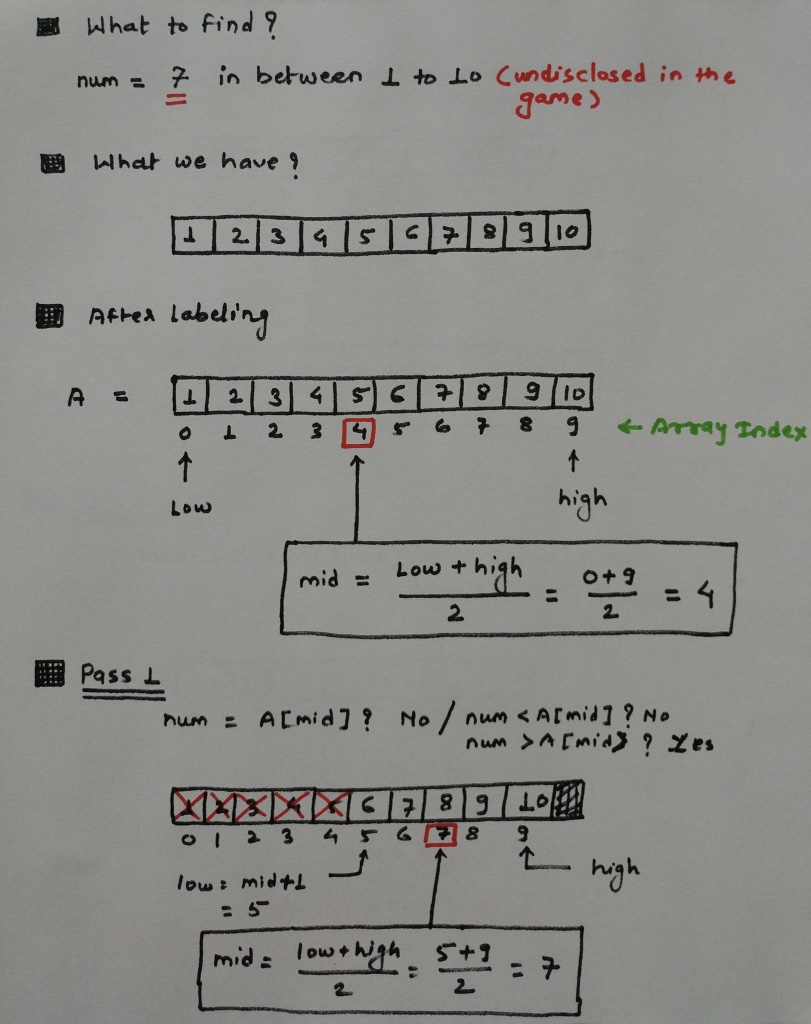 What to find ?
num = 7 in between 1 to 10 (undisclosed in the
game)
What we have ?
1 2 3 4 5 6 7 8 9 10
After labeling
A = 1 2 3 4 5 6 7 8 9 10
0 1 2 3 4 5 6 7 8 9 ← Array Index
Low high
mid = Low + high / 2 = 0+9 / 2 = 4
Pass 1
num = A[mid] ? No / num < A[mid] ? No
num > A[mid] ? Yes
1 2 3 4 5 6 7 8 9 10
0 1 2 3 4 5 6 7 8 9
low = mid+1 high
= 5
mid = low+high / 2 = 5+9 / 2 = 7